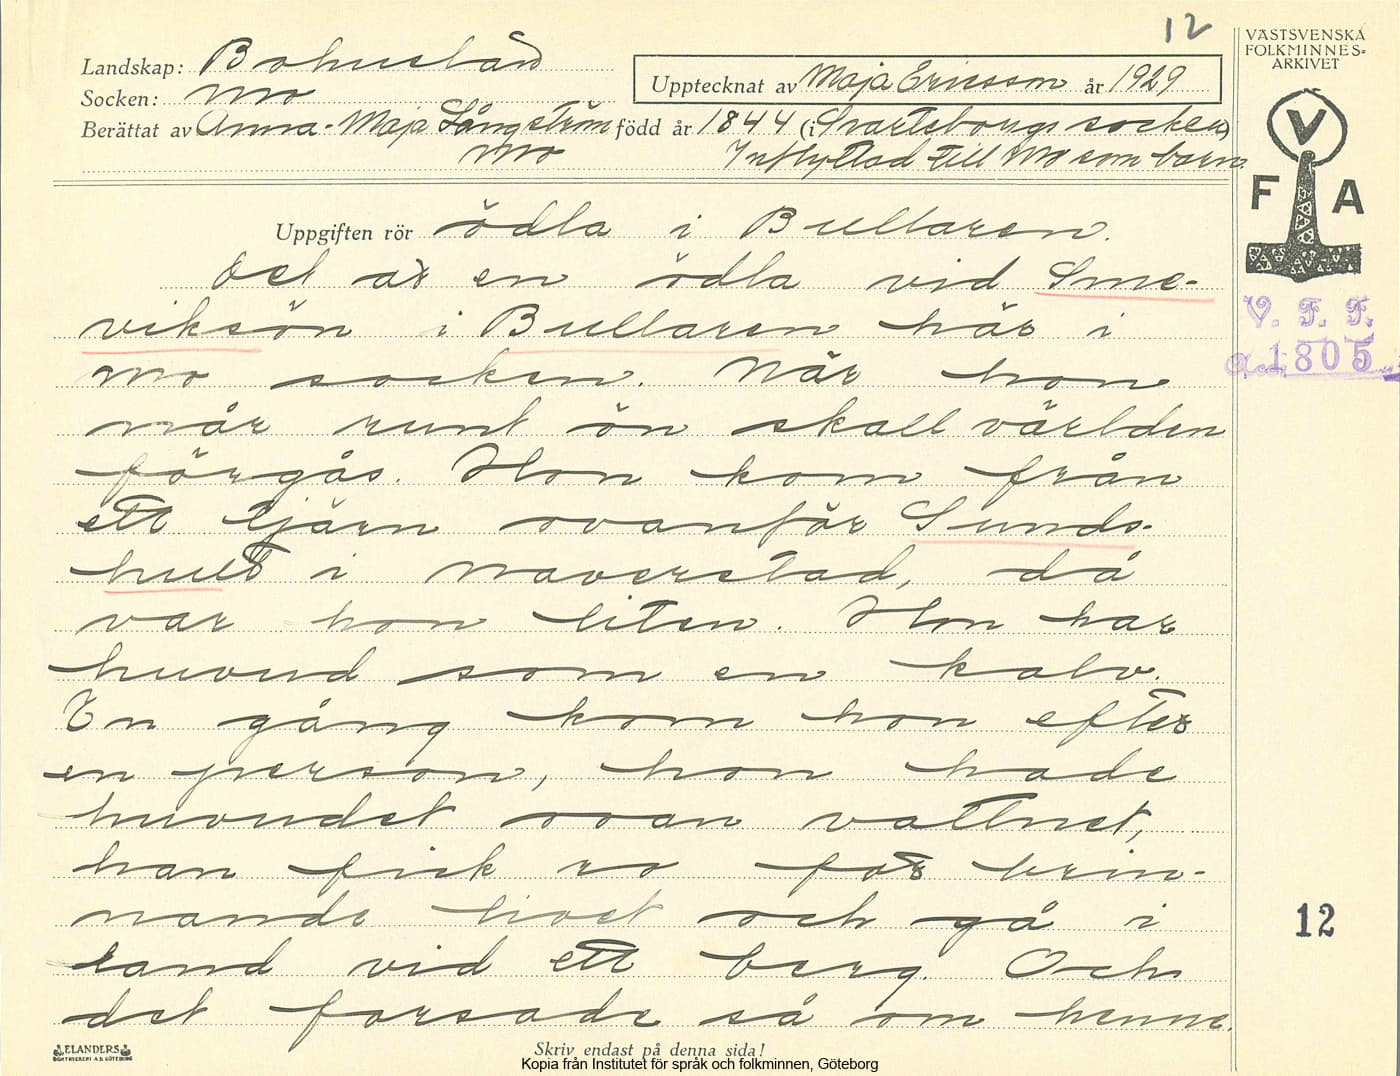 12
VÄSTSVENSKA
FOLKMINNES-
ARKIVET
Landskap: Bohuslän
Upptecknat av Maja Ericsson år 1929
Socken: Mo
Berättat av Anna-Maja Långström född år 1844 (i Svarteborgs socken)
Mo Inflyttad till Mo som barn.
V
F A
Uppgiften rör ödla i Bullaren.
Det är en ödla vid Sme-
viksön i Bullaren här i
Mo socken. När hon
når runt ön skall världen
förgås. Hon kom från
ett tjärn ovanför Sunds-
hult i Naverstad, då
var hon liten. Hon har
huvud som en kalv.
En gång kom hon efter
en person, hon hade
huvudet ovan vattnet,
han fick ro för brin-
nande livet och gå i
land vid ett berg. Och
det forsade så om henne.
V. F. F.
Acc. 1805
12
ELANDERS
BOKTRYCKERI A.B. GÖTEBORG
Skriv endast på denna sida!
Kopia från Institutet för språk och folkminnen, Göteborg